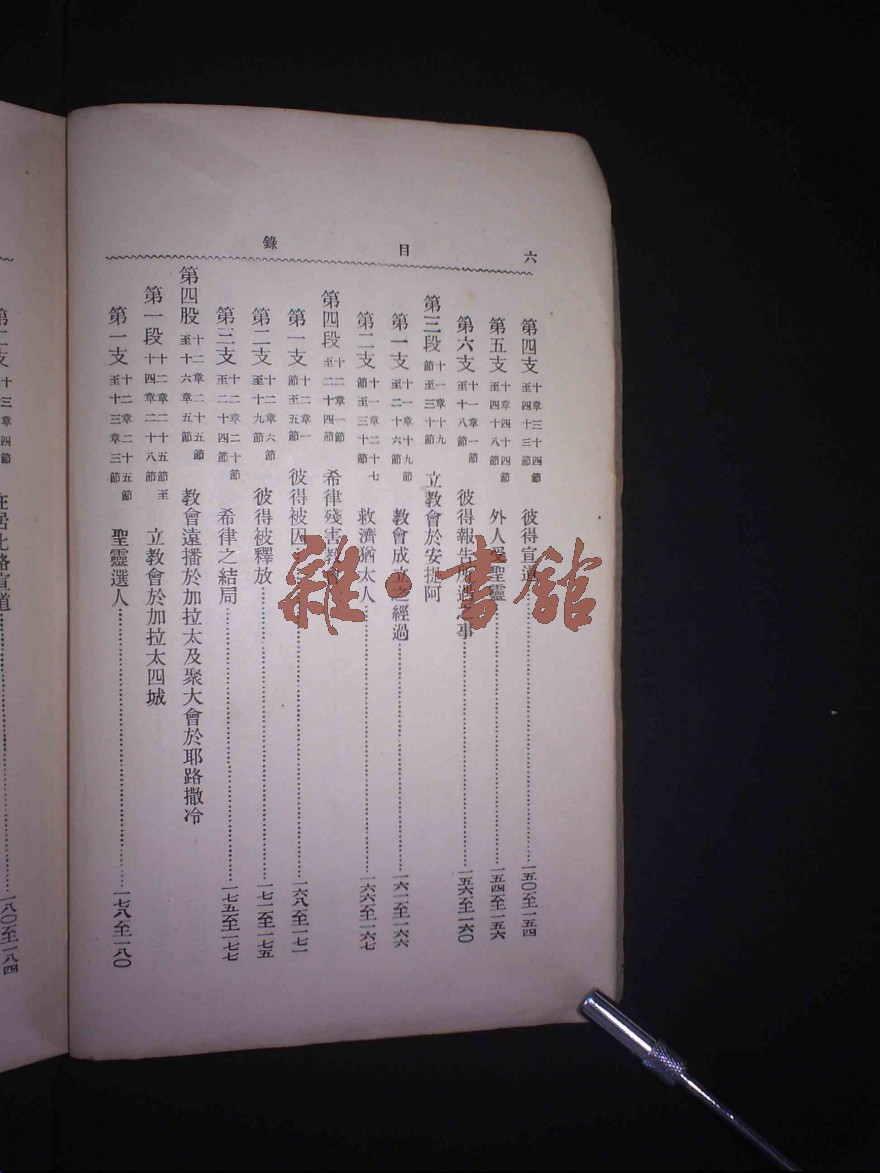 六
目錄
第四支 十章三十四節至四十三節 彼得宣道 一五〇至一五四
第五支 十章四十四節至四十八節 外人受聖靈 一五四至一五六
第六支 十一章一節至十八節 彼得報告所遇之事 一五六至一六〇
第三段 十一章十九節至三十節 立教會於安提阿
第一支 十一章十九節至二十六節 教會成立之經過 一六一至一六六
第二支 十一章二十七節至三十節 救濟猶太人 一六六至一六七
第四段 十二章一節至二十四節 希律殘害教會
第一支 十二章一節至五節 彼得被囚 一六八至一七一
第二支 十二章六節至十九節 彼得被釋放 一七一至一七五
第三支 十二章二十節至二十四節 希律之結局 一七五至一七七
第四股 十二章二十五節至十六章五節 教會遠播於加拉太及聚大會於耶路撒冷
第一段 十二章二十五節至十四章二十八節 立教會於加拉太四城
第一支 十二章二十五節至十三章三節 聖靈選人 一七八至一八〇
第二支 十三章四節 在居比路宣道 一八〇至一八四
雜·書館